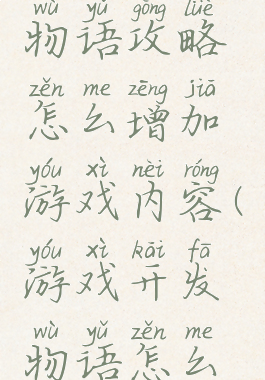 wù yǔ gōng lüè
物语攻略
zěn me zēng jiā
怎么增加
yóu xì nèi róng
游戏内容(
yóu xì kāi fā
游戏开发
wù yǔ zěn me
物语怎么